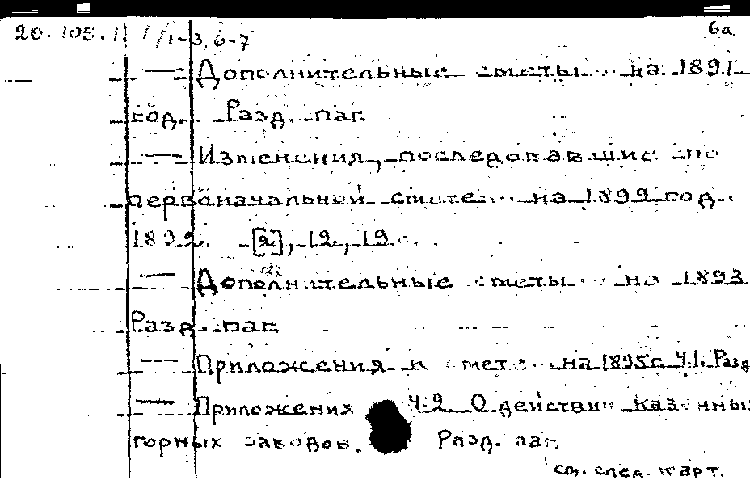 20.105.1. 1/1-3, 6-7
6а
— Дополнительные сметы ... на 1891
год. Разд. паг.
— Изменения, последовавшие по
первоначальной смете... на 1892 год.
1892. [2], 12, 19 с.
— Дополнительные сметы ... на 1893
Разд. паг.
— Приложения к смете ... на 1895 г. Ч.1. Разд
— Приложения Ч.2 О действии казенных
горных заводов. Разд. паг.
см. след. карт.